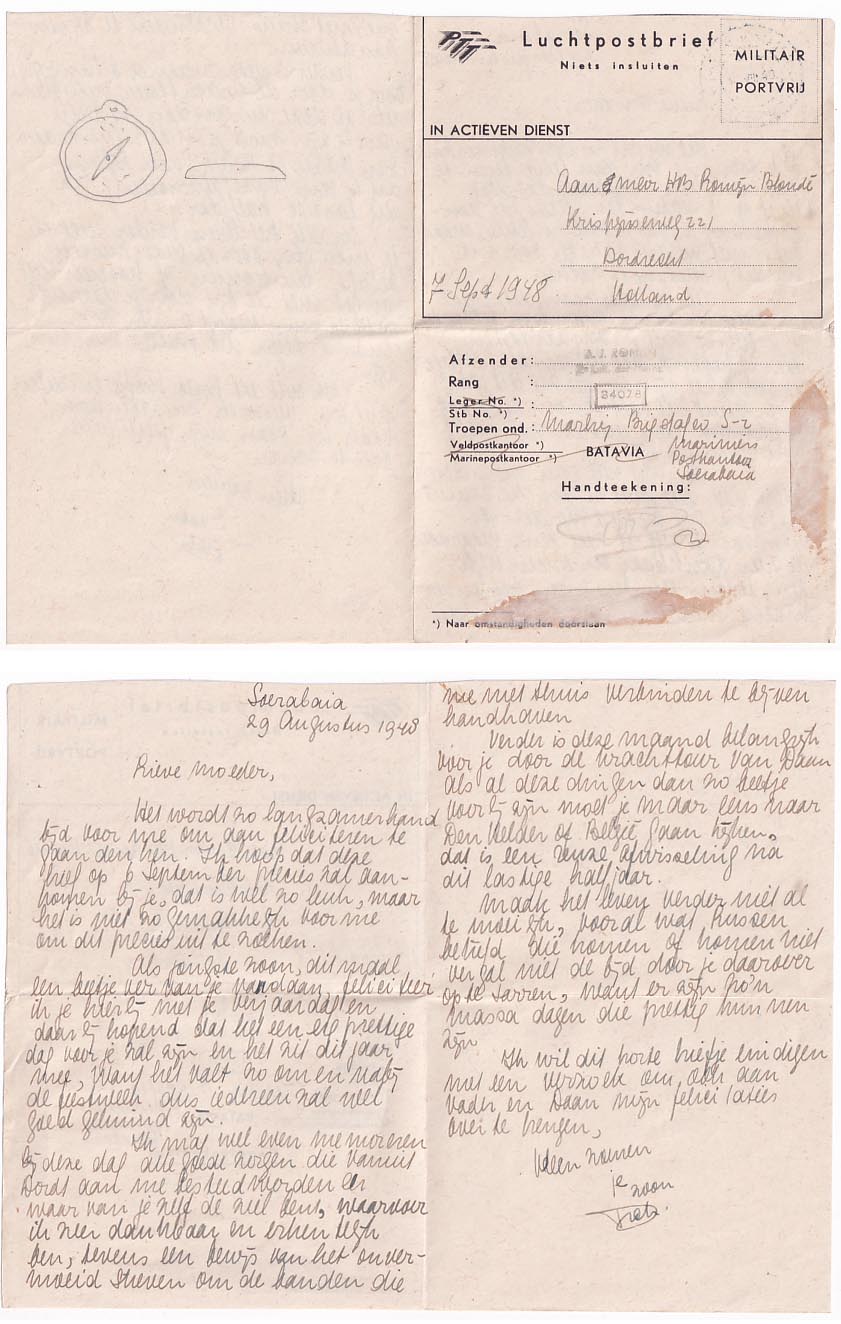 PTT
Luchtpostbrief
Niets insluiten
MILITAIR
PORTVRIJ
IN ACTIEVEN DIENST
Aan meer HB Romijn Blondé
Krispijnseweg 221
Dordrecht
Holland
7 Sept 1948
Afzender:
A. J. ROMIJN
Rang :
Leger No. *) :
34078
Stb No. *)
Troepen ond. : Marbrig Brigstafco S-2
Veldpostkantoor *)
Marinepostkantoor *)
BATAVIA
Mariniers
Postkantoor
Soerabaia
Handteekening:
*) Naar omstandigheden doorslaan
Soerabaia
29 Augustus 1948
Lieve Moeder,
Het wordt zo langzamerhand
tijd voor me om aan feliciteren te
gaan denken. Ik hoop dat deze
brief op 6 September precies zal aan-
komen bij je, dat is wel zo leuk, maar
het is niet zo gemakkelijk voor me
om dit precies uit te zoeken.
Als jongste zoon, dit maal
een beetje ver van je vandaan, feliciteer
ik je hierbij met je verjaardag en
daarbij hopend dat het een erg prettige
dag voor je zal zijn en het zit dit jaar
mee, want het valt zo om en nabij
de feestweek dus iedereen zal wel
goed geluimd zijn.
Ik mag wel even memoreren
bij deze dag alle goede zorgen die vanuit
Dordt aan me besteed worden en
waar van je zelf de ziel bent, waarvoor
ik zeer dankbaar en erkentelijk
ben, tevens een bewijs van het onver-
moeid streven om de banden die
me met thuis verbinden te blijven
handhaven
Verder is deze maand belangrijk
voor je door de vrachttour van Daan
als al deze dingen dan zo beetje
voorbij zijn moet je maar eens naar
Den Helder of België gaan kijken,
dat is een reuze afwisseling na
dit lastige halfjaar.
Maak het leven verder niet al
te moeilijk, vooral wat Russen
betreft die komen of komen niet
vergal niet de tijd door je daarover
op te sarren, want er zijn zo'n
massa dagen die prettig kunnen
zijn
Ik wil dit korte briefje eindigen
met een verzoek om ook aan
vader en Daan mijn felicitaties
over te brengen,
Veel zoenen
je
zoon